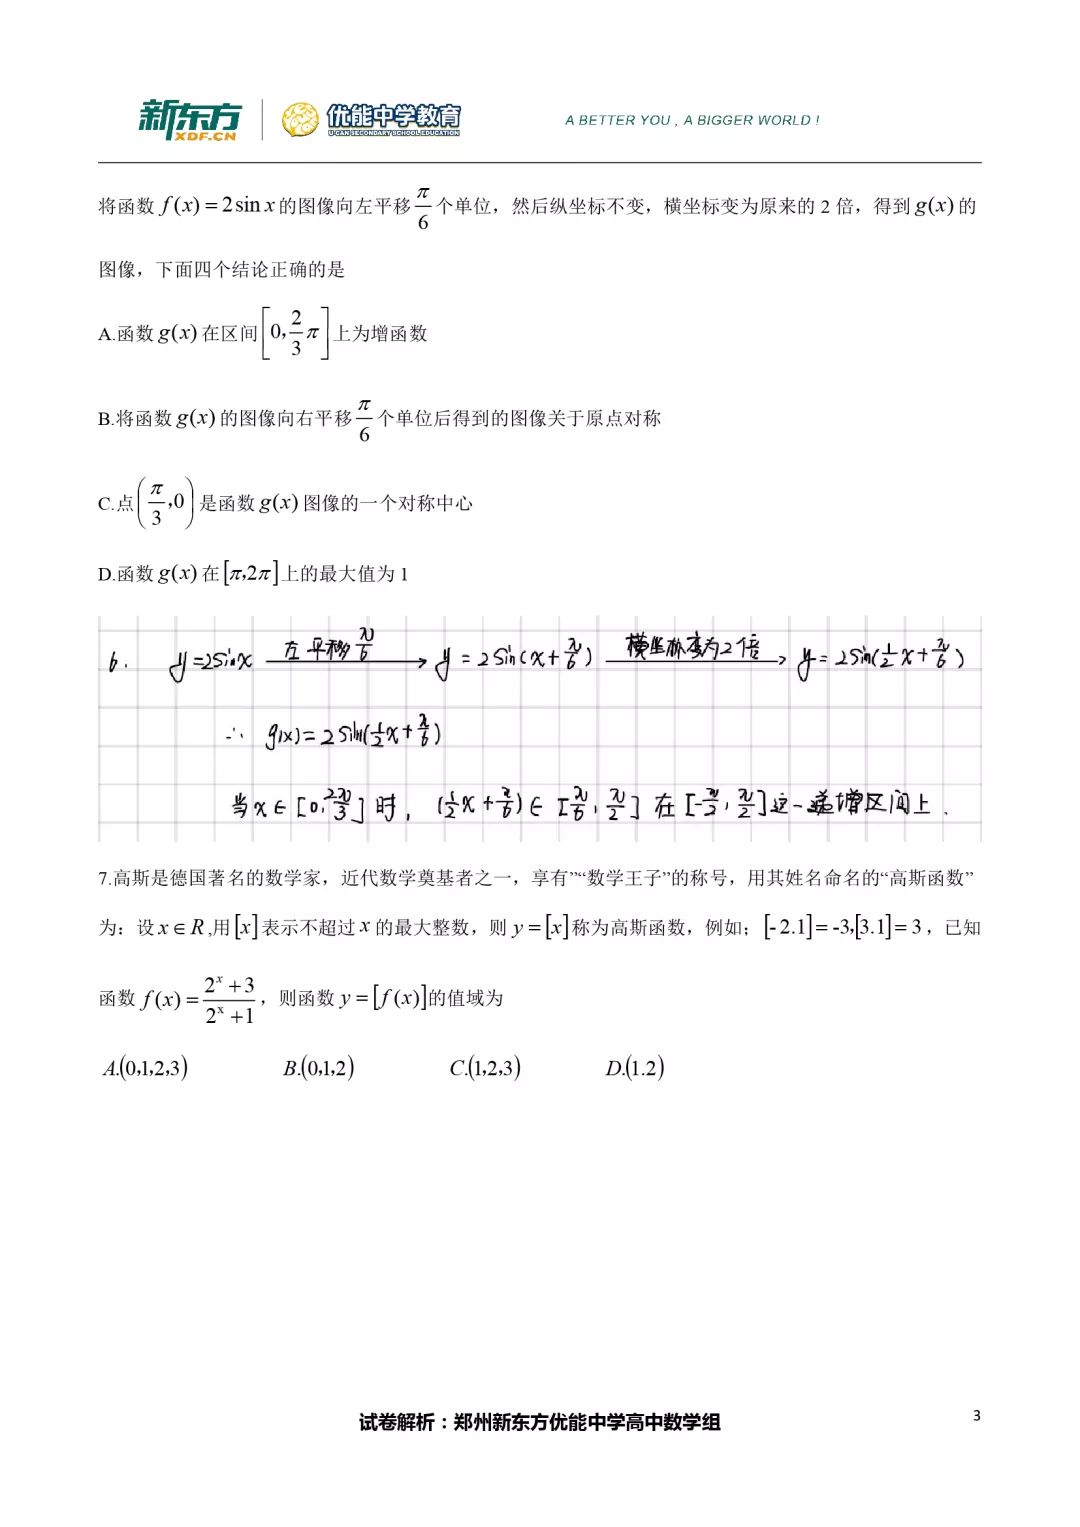 新东方 XDF.CN 优能中学教育 U CAN SECONDARY SCHOOL EDUCATION A BETTER YOU , A BIGGER WORLD !
将函数 f(x) = 2sin x 的图像向左平移 π/6 个单位，然后纵坐标不变，横坐标变为原来的 2 倍，得到 g(x) 的
图像，下面四个结论正确的是
A.函数 g(x) 在区间 [0, 2/3 π] 上为增函数
B.将函数 g(x) 的图像向右平移 π/6 个单位后得到的图像关于原点对称
C.点 (π/3, 0) 是函数 g(x) 图像的一个对称中心
D.函数 g(x) 在 [π,2π] 上的最大值为 1
6. y=2sinx 左平移 π/6 → y = 2sin(x+π/6) 横坐标变为2倍 → y= 2sin(1/2 x+π/6)
∴ g(x)=2sin(1/2 x+π/6)
当 x∈[0, 2π/3] 时, (1/2 x+π/6)∈[π/6, π/2] 在[-π/2, π/2]这一递增区间上.
7.高斯是德国著名的数学家，近代数学奠基者之一，享有”“数学王子”的称号，用其姓名命名的“高斯函数”
为：设 x ∈ R ,用 [x] 表示不超过 x 的最大整数，则 y = [x] 称为高斯函数，例如；[- 2.1] = -3,[3.1] = 3，已知
函数 f(x) = (2^x + 3)/(2^x + 1)，则函数 y = [f(x)]的值域为
A.(0,1,2,3) B.(0,1,2) C.(1,2,3) D.(1.2)
试卷解析：郑州新东方优能中学高中数学组
3